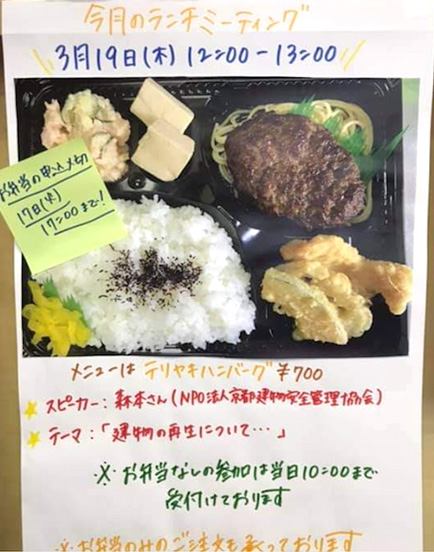 今月のランチミーティング
3月19日(木) 12:00-13:00
お弁当の申込〆切
17日(火)
17:00まで！
メニューは テリヤキハンバーグ ¥700
スピーカー：森本さん(NPO法人京都建物安全管理協会)
テーマ：「建物の再生について…」
※お弁当なしの参加は当日10:00まで
受付けております
※お弁当のみのご注文も承っております